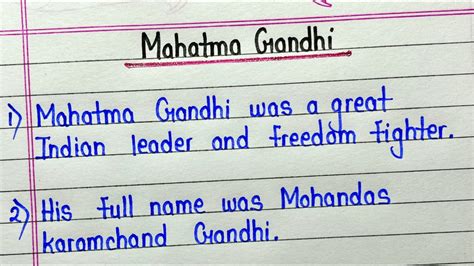 Mahatma Gandhi
1) Mahatma Gandhi was a great
Indian leader and freedom fighter.
2) His full name was Mohandas
karamchand Gandhi.